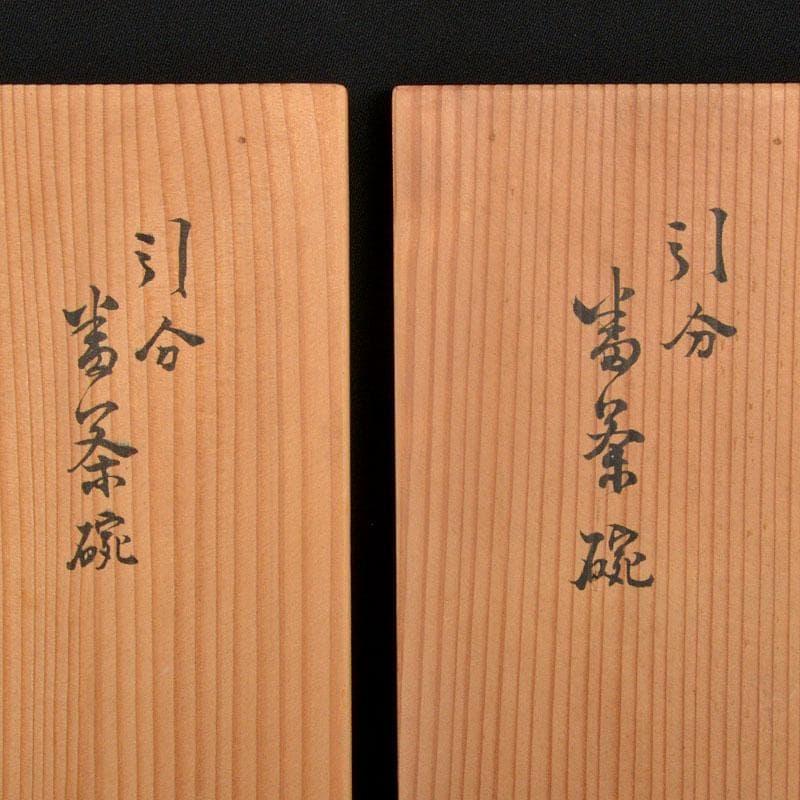 引分
番茶碗
引分
番茶碗